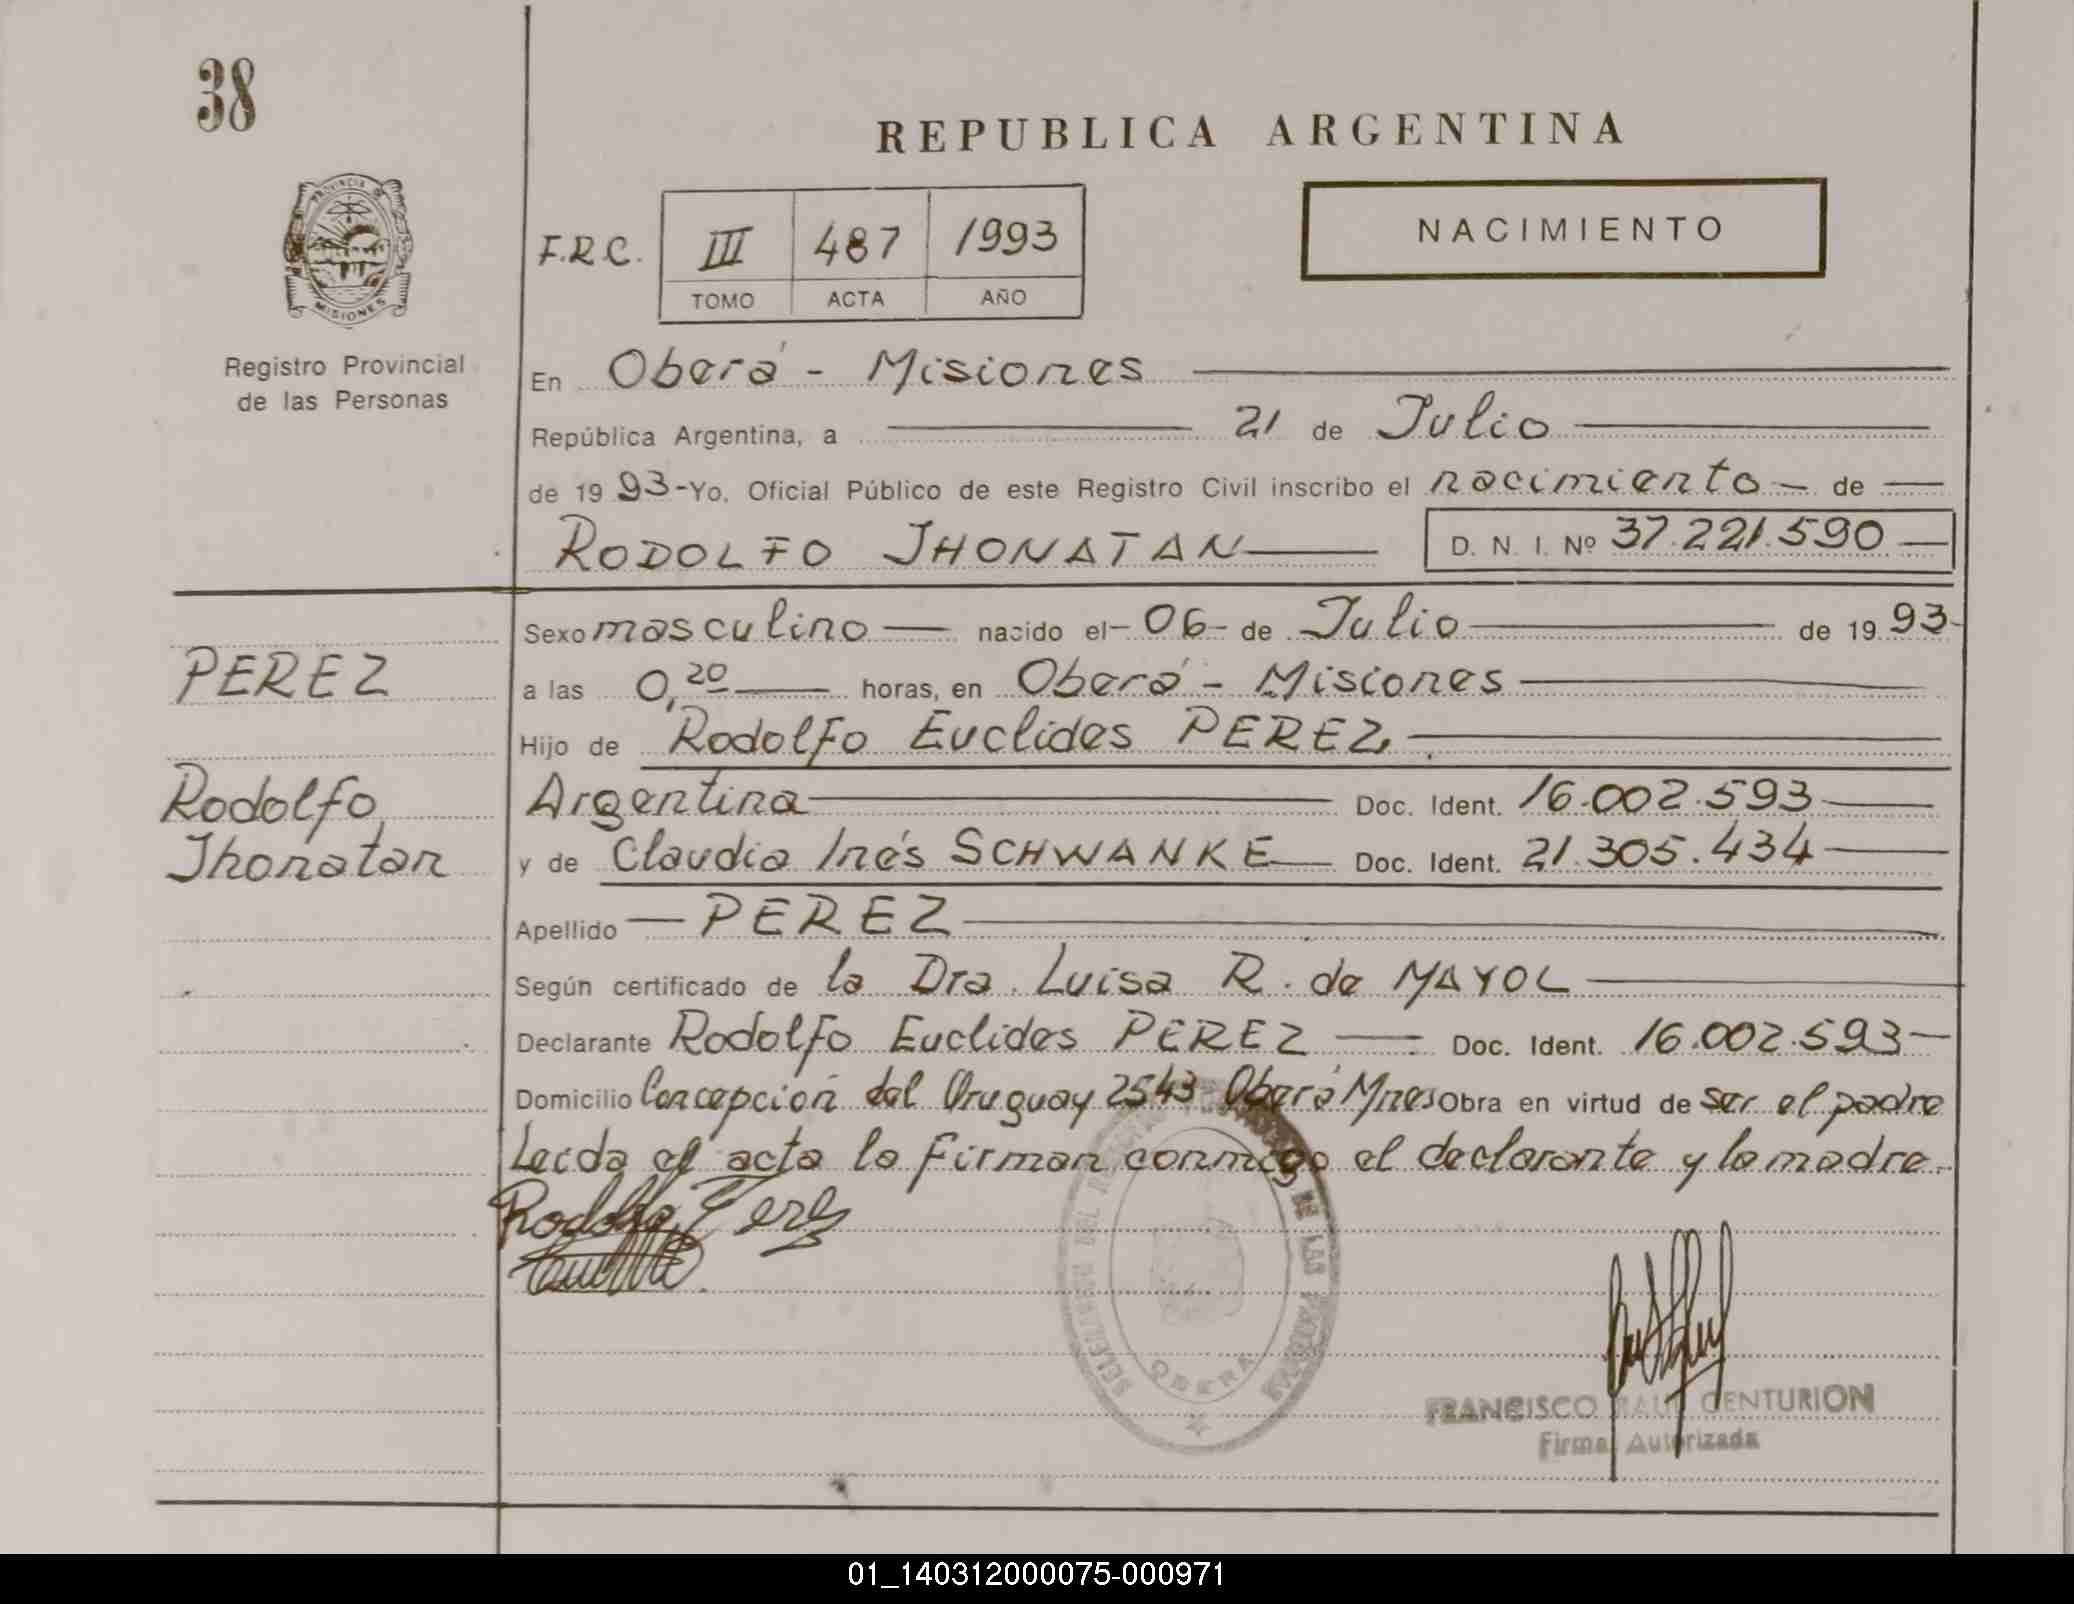 38
REPUBLICA ARGENTINA
PROVINCIA DE
MISIONES
Registro Provincial
de las Personas
F.R.C. III 487 1993
TOMO ACTA AÑO
NACIMIENTO
En Oberá - Misiones
República Argentina, a 21 de Julio
de 19 93-Yo, Oficial Público de este Registro Civil inscribo el nacimiento - de
RODOLFO JHONATAN D. N. I. Nº 37.221.590
Sexo masculino nacido el - 06 - de Julio de 19 93-
PEREZ
a las 0,20 horas, en Oberá - Misiones
Hijo de Rodolfo Euclides PEREZ,
Rodolfo
Argentina Doc. Ident. 16.002.593
Jhonatan
y de Claudia Inés SCHWANKE Doc. Ident. 21.305.434
Apellido - PEREZ
Según certificado de la Dra. Luisa R. de MAYOL
Declarante Rodolfo Euclides PEREZ Doc. Ident. 16.002.593-
Domicilio Concepción del Uruguay 2543 Oberá Mnes Obra en virtud de ser el padre
Leída el acta la firman conmigo el declarante y la madre.
Rodolfo Perez
DEL DE LAS PERSONAS
OBERA
FRANCISCO RAUL CENTURION
Firma Autorizada
01_140312000075-000971